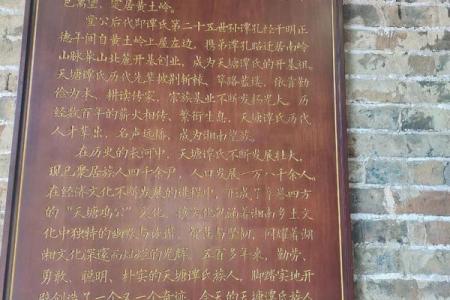 已葛望，定居黄土岭。
寔公后代即谭氏第二十五世孙谭孔经于明正
德年间自黄土岭上屋左边，携弟谭孔略迁居南岭
山脉莱山北麓开基创业，成为天塘谭氏的开基祖。
天塘谭氏历代先辈披荆斩棘、筚路蓝缕，依靠勤
俭为本、耕读传家，宗族基业不断发扬光大，历
经数百年的薪火相传、繁衍生息，天塘谭氏历代
人才辈出，名声远播，成为湘南望族。
在历史的长河中，天塘谭氏不断发展壮大，
现已聚居族人四千余户，人口发展一万八千余人。
在经济文化不断发展的进程中，形成了享誉四方
的“天塘鸡公”文化，该文化饱涵着湖南乡土文
化中独特的幽默与诙谐、智慧与坚韧，闪耀着湖
湘文化深邃而灿烂的光辉。五百多年来，勤劳、
勇敢、聪明、朴实的天塘谭氏族人，脚踏实地开
创造了一个又一个奇迹，今天的天塘谭氏族人